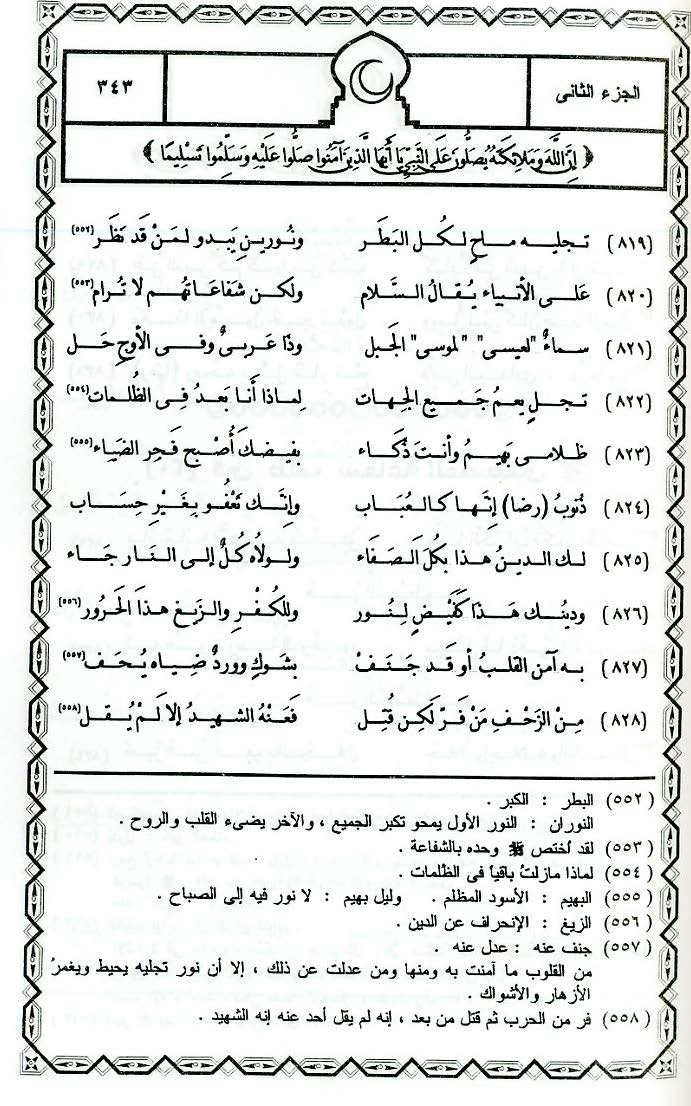 الجزء الثانى
٣٤٣
﴿ إِنَّ اللَّهَ وَمَلَائِكَتَهُ يُصَلُّونَ عَلَى النَّبِيِّ يَا أَيُّهَا الَّذِينَ آمَنُوا صَلُّوا عَلَيْهِ وَسَلِّمُوا تَسْلِيمًا ﴾
(٨١٩) تـجليـه مــاحٍ لـكُـل البَطَر ونُـوريـنِ يَبـدو لـمَنْ قَد نَظَر (٥٥٢)
(٨٢٠) عَلـى الأنبيـاء يُـقـالُ السَّـلام ولكـن شفَاعَـاتُهُـم لا تُـرام (٥٥٣)
(٨٢١) سمـاءٌ "لعيسى" "لموسى" الجَبل وذَا عَـربـىٌ وفـى الأوجِ حَـل
(٨٢٢) تـجـلٍ يعـمُ جَمـيعَ الجهات لماذا أنَـا بَعـدُ فى الظلمات (٥٥٤)
(٨٢٣) ظلامـى بَهيمُ وأنـتَ ذُكَـاء بفيضكَ أُصْبح فَجر الضيَاء (٥٥٥)
(٨٢٤) ذنوبُ (رضا) إنَّهـا كـالعُبَاب وإنَّـك تَعْفُو بِغَيْرِ حِسَـاب
(٨٢٥) لـك الديـنُ هذا بكُل الصَفَاء ولـولاهُ كُلٌ إلى النـار جَـاء
(٨٢٦) ودينُـك هَـذَا كَنَبْضٍ لِنُـور وللكُـفْرِ والزيغ هذا الحَرُور (٥٥٦)
(٨٢٧) به آمن القلبُ أو قد جَنَفْ بشوكٍ ووردٌ ضِياه يُـحَف (٥٥٧)
(٨٢٨) مِنْ الزَحْفِ مَنْ فَرّ لَكِن قُتِل فَعَنْهُ الشهيدُ إلا لَمْ يُـقل (٥٥٨)
(٥٥٢) البطر : الكبر .
النوران : النور الأول يمحو تكبر الجميع ، والآخر يضىء القلب والروح .
(٥٥٣) لقد أختص ﷺ وحده بالشفاعة .
(٥٥٤) لماذا مازلتُ باقياً فى الظلمات .
(٥٥٥) البهيم : الأسود المظلم . وليل بهيم : لا نور فيه إلى الصباح .
(٥٥٦) الزيغ : الإنحراف عن الدين .
(٥٥٧) جنف عنه : عدل عنه .
من القلوب ما آمنت به ومنها ومن عدلت عن ذلك ، إلا أن نور تجليه يحيط ويغمرُ
الأزهار والأشواك .
(٥٥٨) فر من الحرب ثم قتل من بعد ، إنه لم يقل أحد عنه إنه الشهيد .